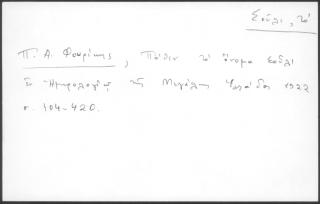 Σούλι, τὸ
Π. Α. Φουρίκης, Πόθεν τὸ ὄνομα Σούλι
ἐν Ἡμερολογίῳ τῆς Μεγάλης Ἑλλάδος 1922
σ. 404-420.